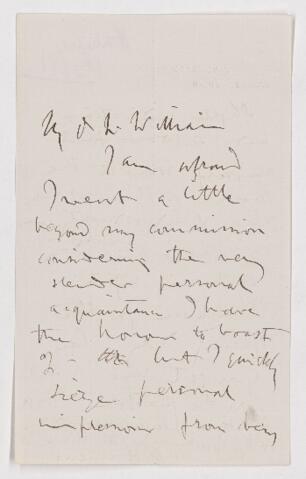 My d Sr William
I am afraid
I went a little
beyond my commission
considering the very
slender personal
acquaintance I have
the honour to boast
of - but I quickly
seize personal
impressions from very